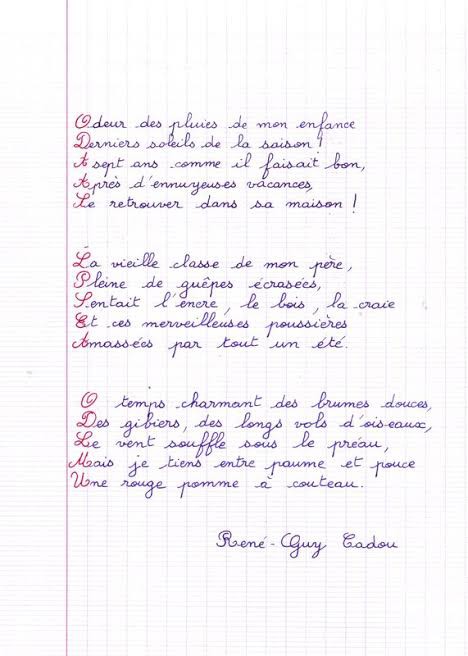 Odeur des pluies de mon enfance
Derniers soleils de la saison !
A sept ans comme il faisait bon,
Après d'ennuyeuses vacances,
Se retrouver dans sa maison !
La vieille classe de mon père,
Pleine de guêpes écrasées,
Sentait l'encre, le bois, la craie
Et ces merveilleuses poussières
Amassées par tout un été.
O temps charmant des brumes douces,
Des gibiers, des longs vols d'oiseaux,
Le vent souffle sous le préau,
Mais je tiens entre paume et pouce
Une rouge pomme à couteau.
René-Guy Cadou